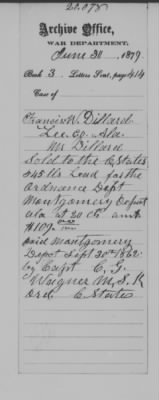 Archive Office,
WAR DEPARTMENT,
June 30, 1879.
Book 3. Letters Sent, page 414
Case of
Francis W. Dillard
Lee Co. Ala
Mr Dillard
Sold to the C States
545 lbs Lead for the
Ordnance Dept
Montgomery Depot
Ala at 20 cts amt
$109.
paid Montgomery
Depot Sept 30th 1862
by Capt C. G.
Wagner M. S. K
Ord. C States